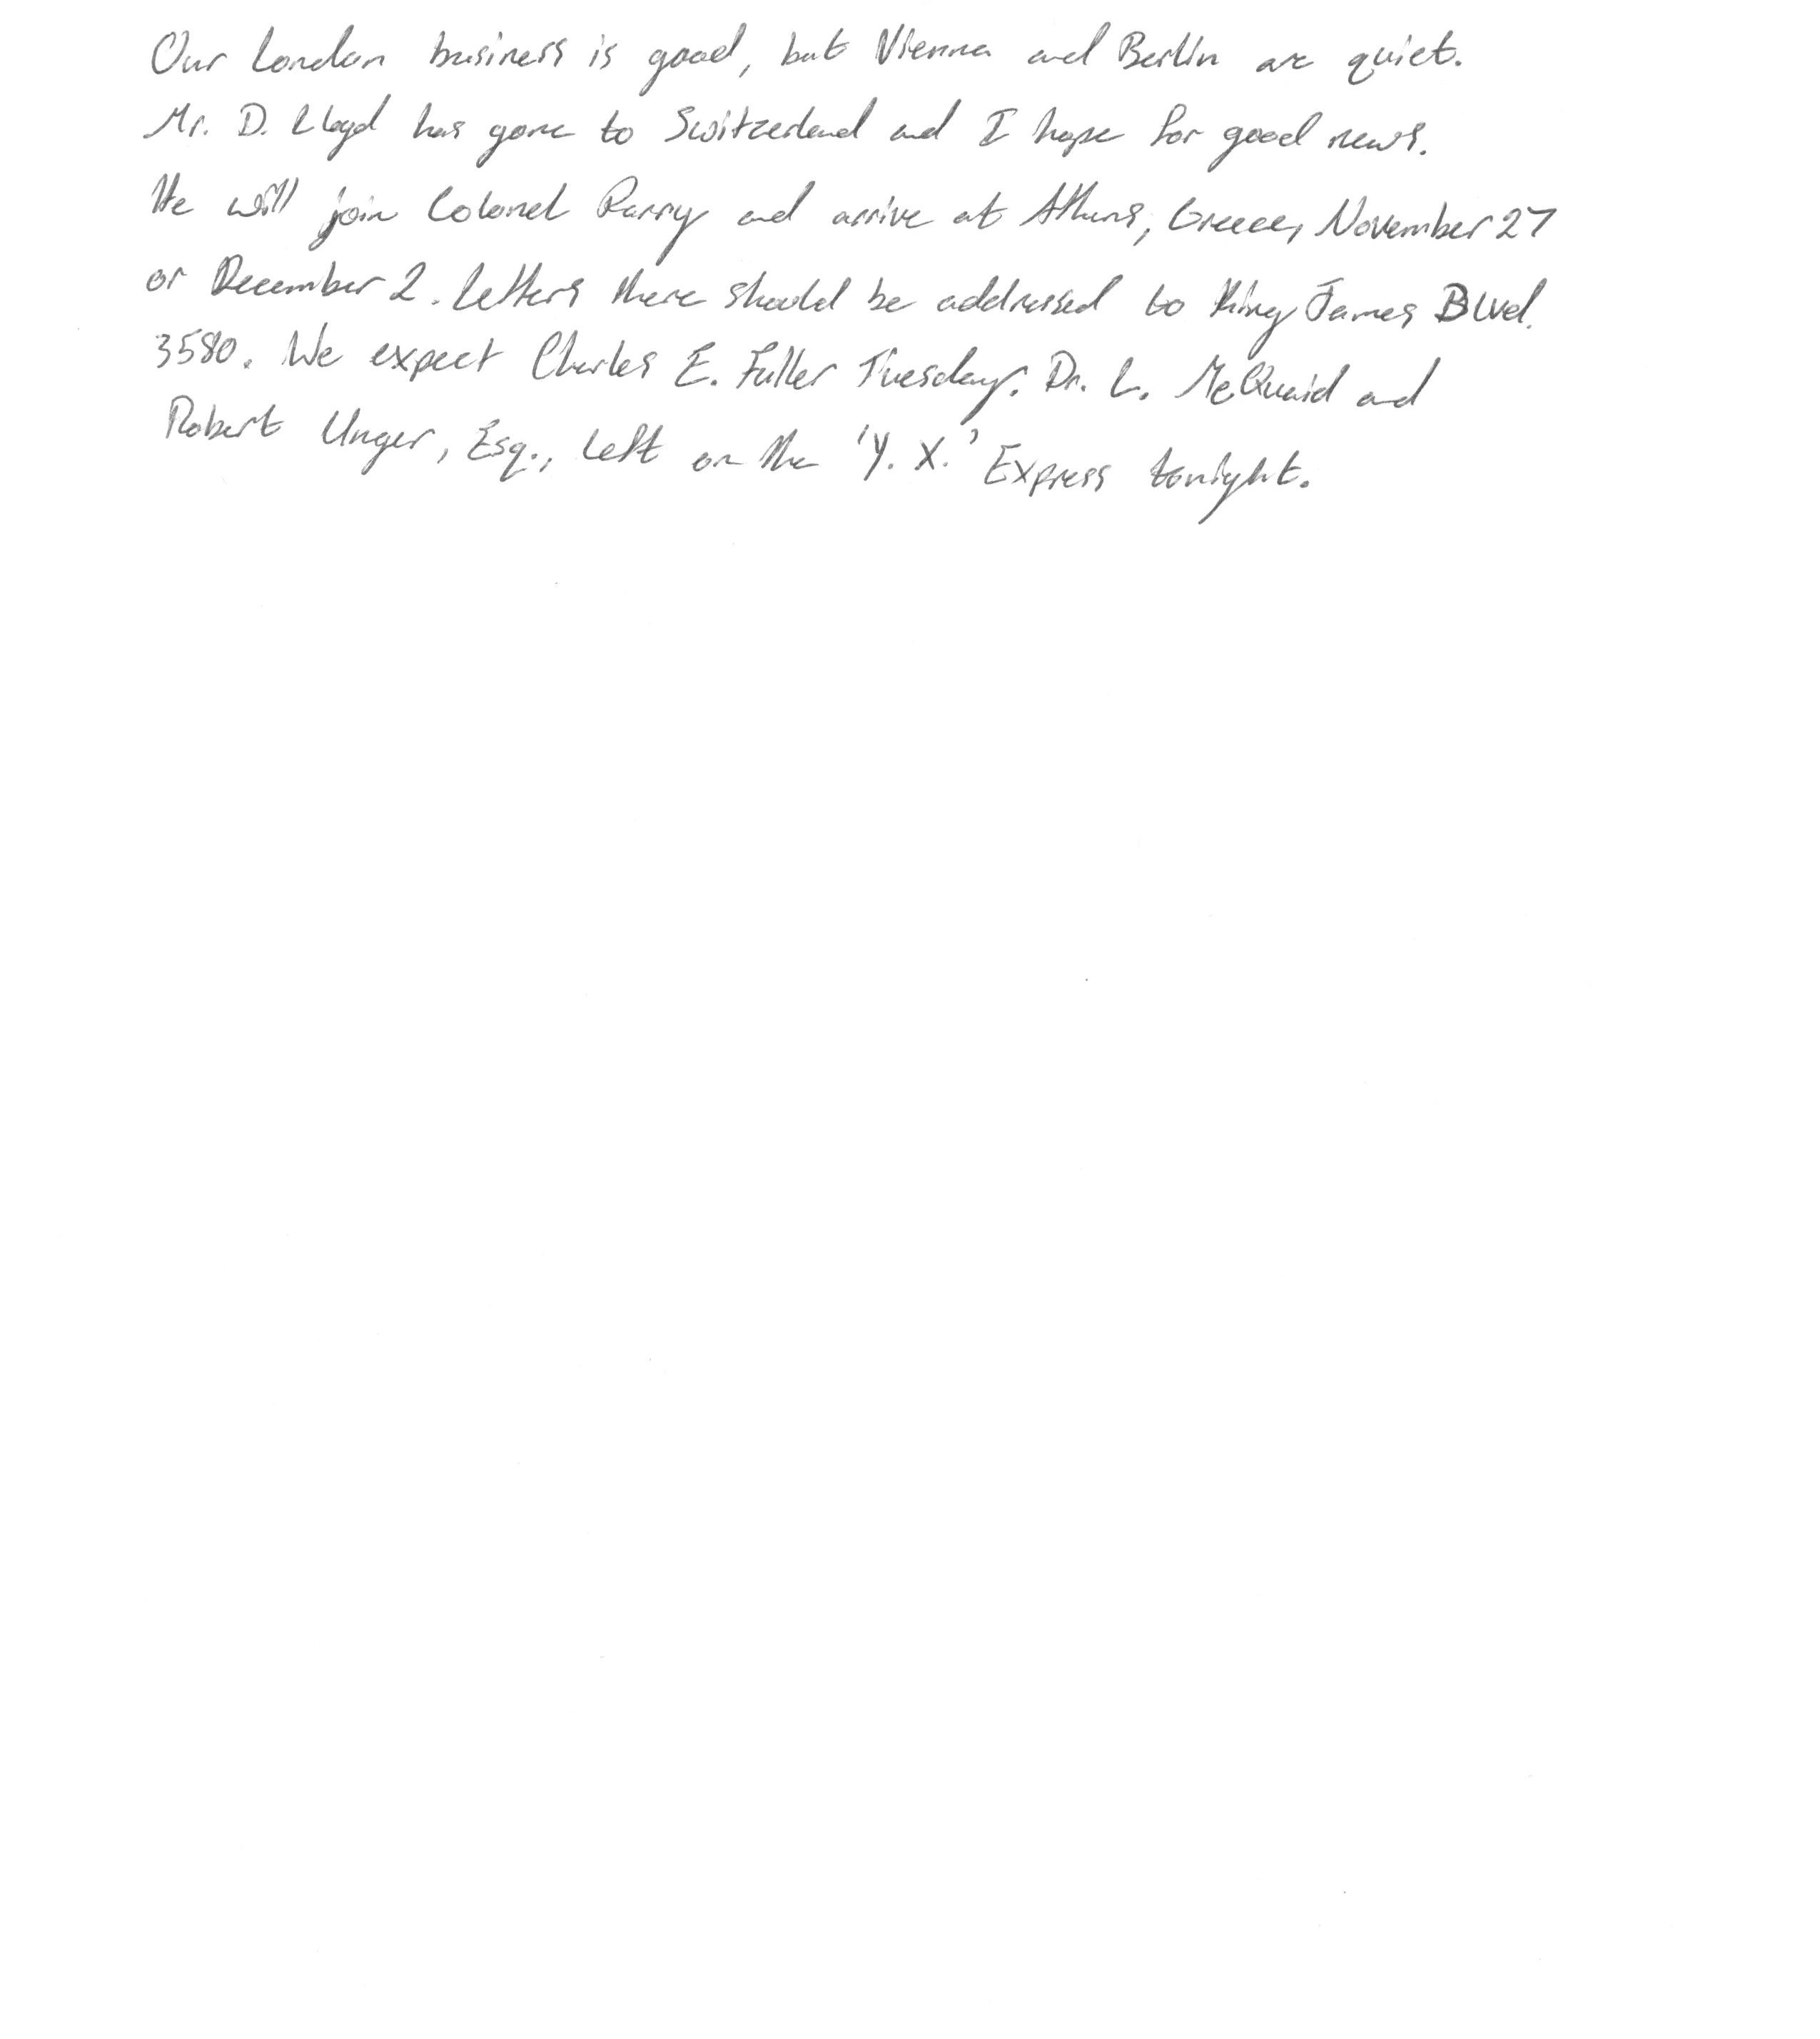 Our London business is good, but Vienna and Berlin are quiet.
Mr. D. Lloyd has gone to Switzerland and I hope for good news.
He will join Colonel Parry and arrive at Athens, Greece, November 27
or December 2. Letters there should be addressed to King James Blvd.
3580. We expect Charles E. Fuller Tuesday. Dr. L. McQuaid and
Robert Unger, Esq., left on the 'Y. X.' Express tonight.